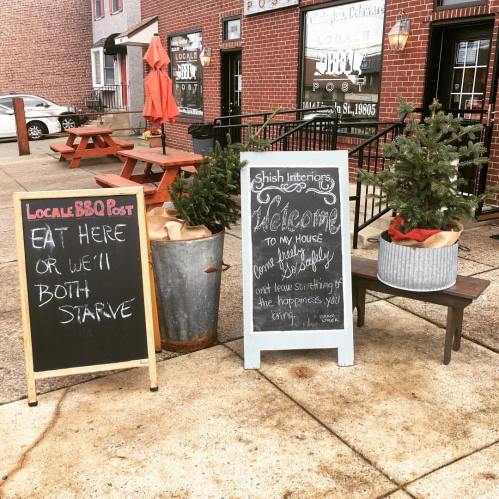 LOCALE
BBQ
POST
POST
Wilmington, Delaware
LOCALE
BBQ
POST
1014 Lincoln St., 19805
LOCALE BBQ POST
EAT HERE
OR WE'LL
BOTH
STARVE
Shish Interiors
Welcome
TO MY HOUSE
Come freely
Go safely
and leave something of
the happiness you
bring.
BRAM
STOKER